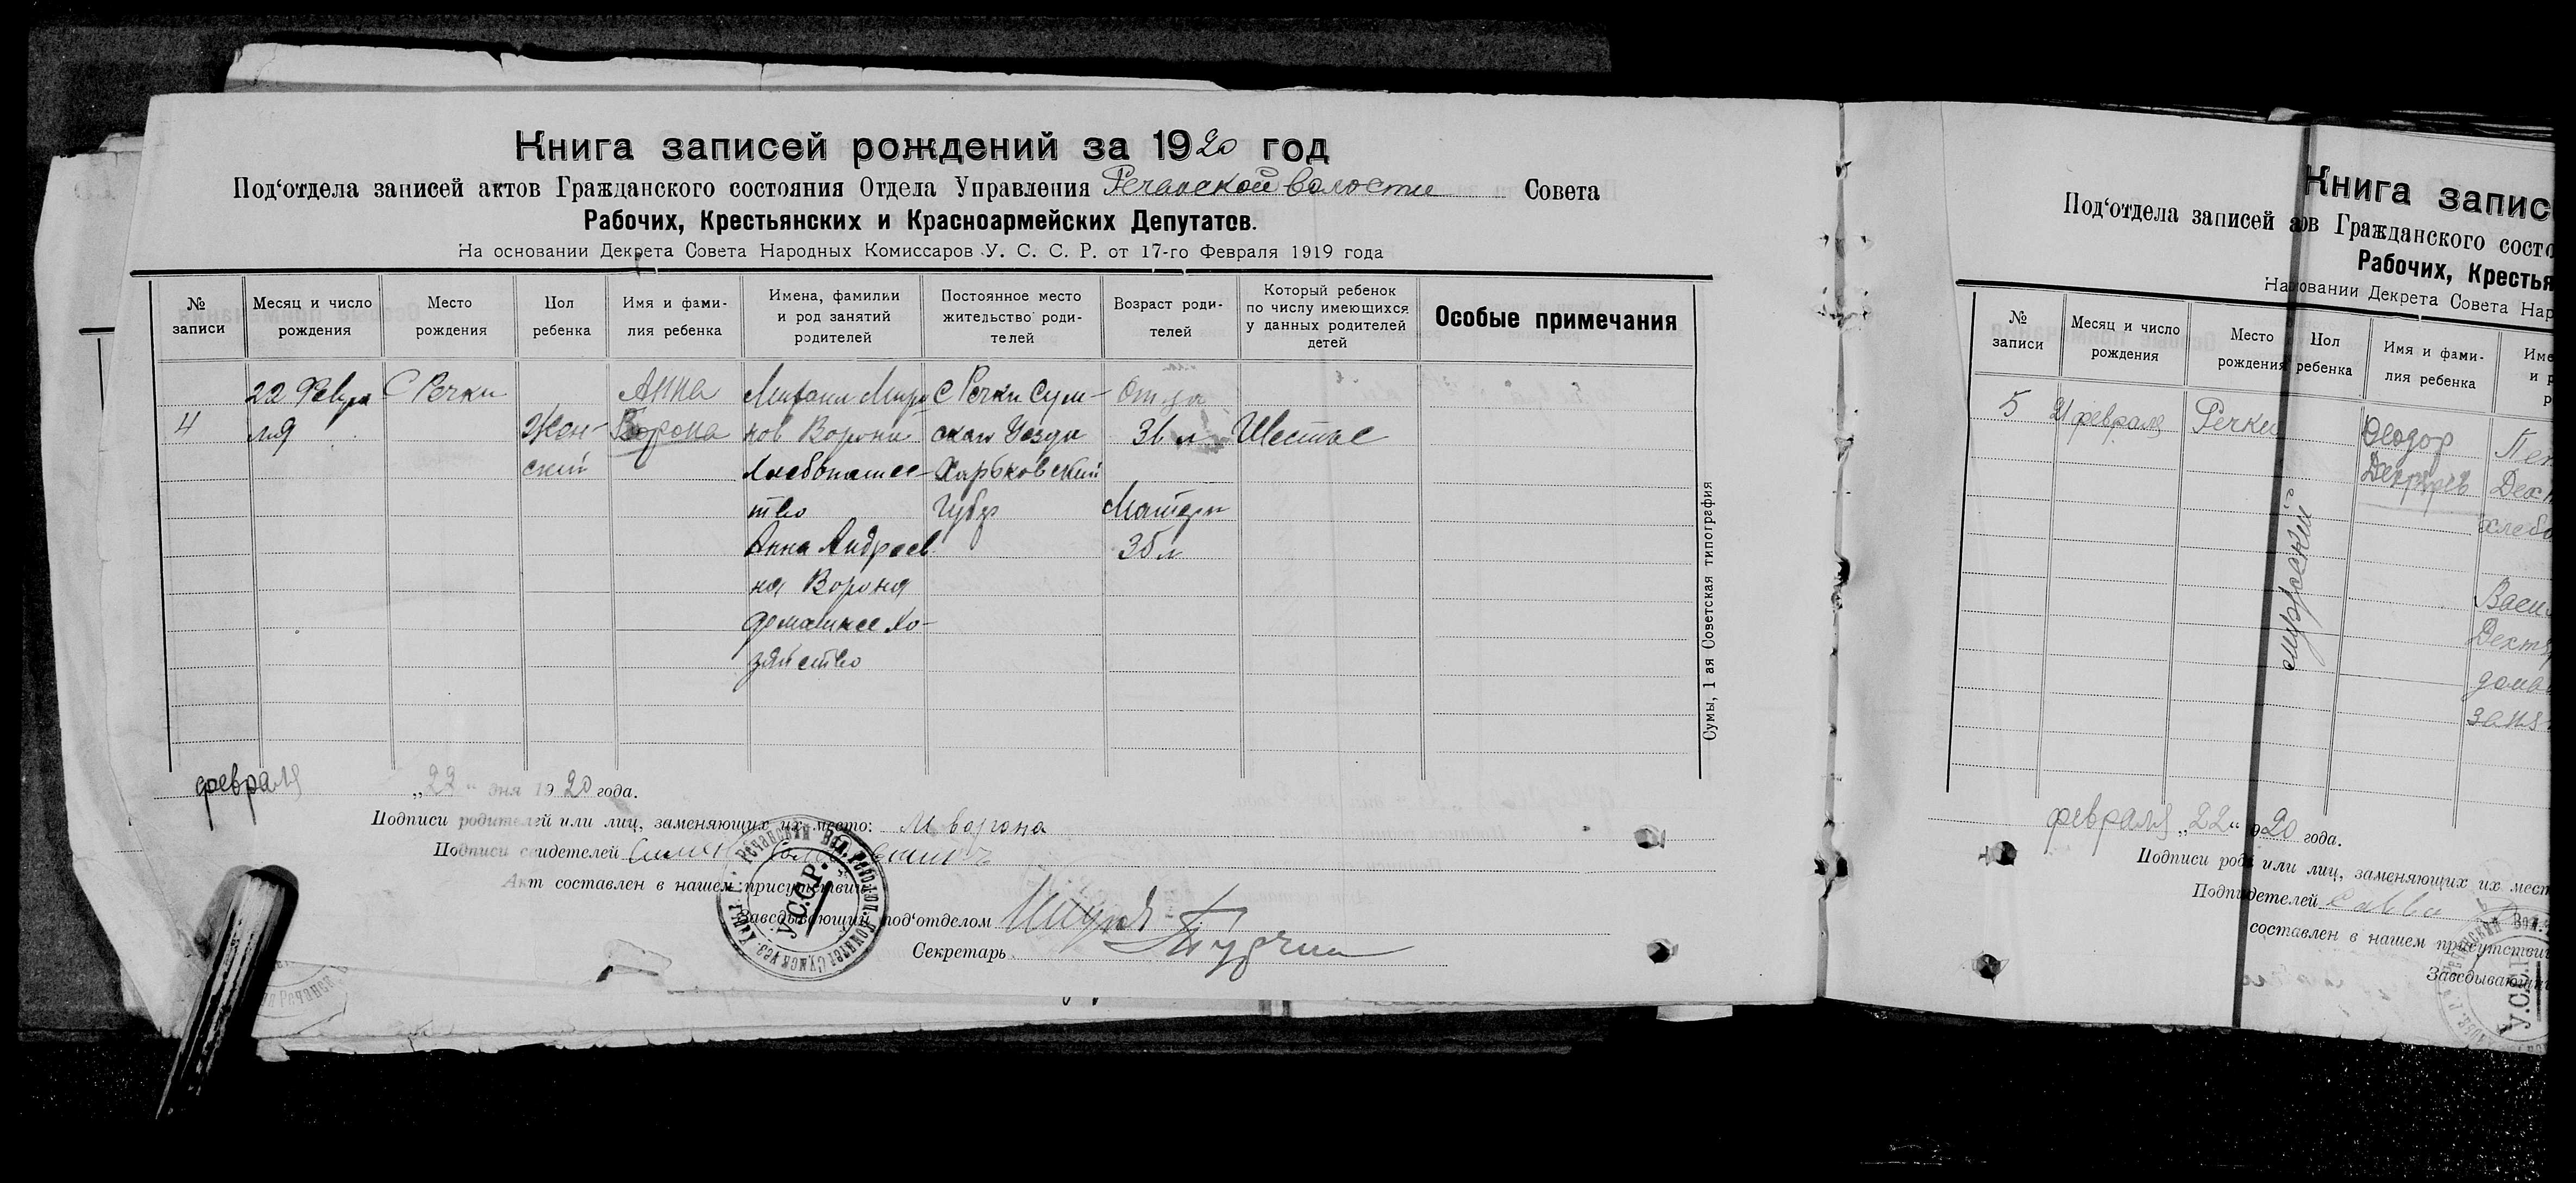 Книга записей рождений за 1920 год
Под‘отдела записей актов Гражданского состояния Отдела Управления Речанской волости Совета
Рабочих, Крестьянских и Красноармейских Депутатов.
На основании Декрета Совета Народных Комиссаров У. С. С. Р. от 17-го Февраля 1919 года
№ записи
Месяц и число рождения
Место рождения
Пол ребенка
Имя и фами-
лия ребенка
Имена, фамилии
и род занятий
родителей
Постоянное место
жительство роди-
телей
Возраст роди-
телей
Который ребенок
по числу имеющихся
у данных родителей
детей
Особые примечания
4
22 Февра
ля
С Речки
Жен-
ский
Анна
Ворона
Михаил Миро
нов Ворона
Хлебопаше-
тво
Анна Андреев
на Ворона
домашнее хо-
зяйство
С Речки Сум-
скаго Уезда
Харьковский
Губер
Отца
36 л
Матери
35 л
Шестые
Сумы, 1 ая Советская типография
февраля „22“ дня 1920 года.
Подписи родителей или лиц, заменяющих их место: М ворона
Подписи свидетелей
Акт составлен в нашем присутствии
Заведывающий под‘отделом
Секретарь
У.С.С.Р.
Книга запис
Под‘отдела записей ов Гражданского состо
Рабочих, Крестья
На овании Декрета Совета Нар
№
записи
Месяц и число
рождения
Место
рождения
Пол
ребенка
Имя и фами-
лия ребенка
Име
и р
р
5
21 февраля
Речки
мужский
Феодор
Пен
Дех
хлебо
Васи
Дехтя
дома
заня
февраля „22“ 920 года.
Подписи род или лиц, заменяющих их мест
Подп детелей Савва
составлен в нашем присутстви
Заведывающи
У.С.С.Р